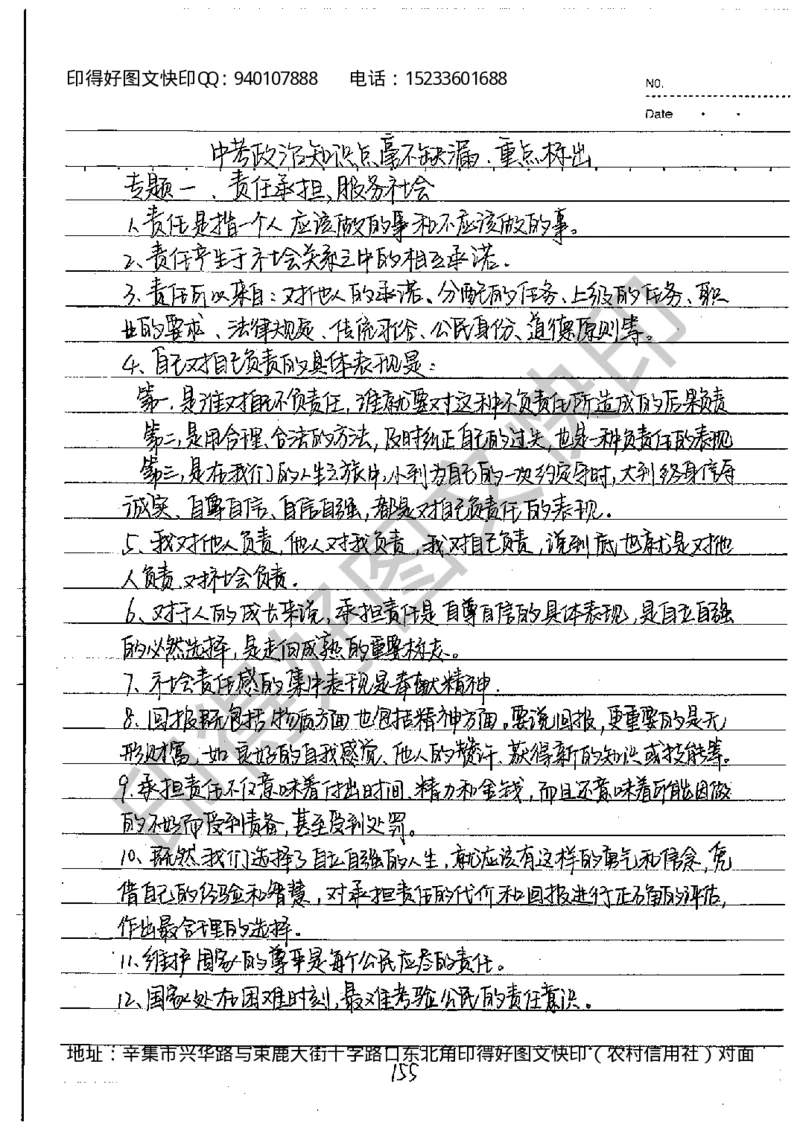 印得好图文快印QQ：940107888 电话：15233601688
NO.
Date
中考政治知识点毫不缺漏、重点标出
专题一、责任承担、服务社会
1、责任是指一个人应该做的事和不应该做的事。
2、责任产生于社会关系之中的相互承诺.
3、责任可以来自：对他人的承诺、分配的任务、上级的任务、职
业的要求、法律规定、传统习俗、公民身份、道德原则等。
4、自己对自己负责的具体表现是：
第一，是谁对自己不负责任，谁就要对这种不负责任所造成的后果负责
第二，是用合理、合法的方法，及时纠正自己的过失，也是一种负责任的表现
第三，是在我们的人生之旅中，小到为自己的一次约定守时，大到终身信守
诚实、自尊自信、自信自强，都是对自己负责任的表现.
5、我对他人负责，他人对我负责，我对自己负责，说到底也就是对他
人负责、对社会负责.
6、对于人的成长来说，承担责任是自尊自信的具体表现，是自立自强
的必然选择，是走向成熟的重要标志。
7、社会责任感的集中表现是奉献精神.
8、回报既包括物质方面也包括精神方面。要说回报，更重要的是无
形财富，如良好的自我感觉、他人的赞许、获得新的知识或技能等。
9、承担责任不仅意味着付出时间、精力和金钱，而且还意味着可能因做
的不好而受到责备，甚至受到处罚。
10、既然我们选择了自立自强的人生，就应该有这样的勇气和信念，凭
借自己的经验和智慧，对承担责任的代价和回报进行正确的评估，
作出最合理的选择.
11、维护国家的尊严是每个公民应尽的责任。
12、国家处在困难时刻，最难考验公民的责任意识。
地址：辛集市兴华路与束鹿大街十字路口东北角印得好图文快印（农村信用社）对面
155
印得好图文快印